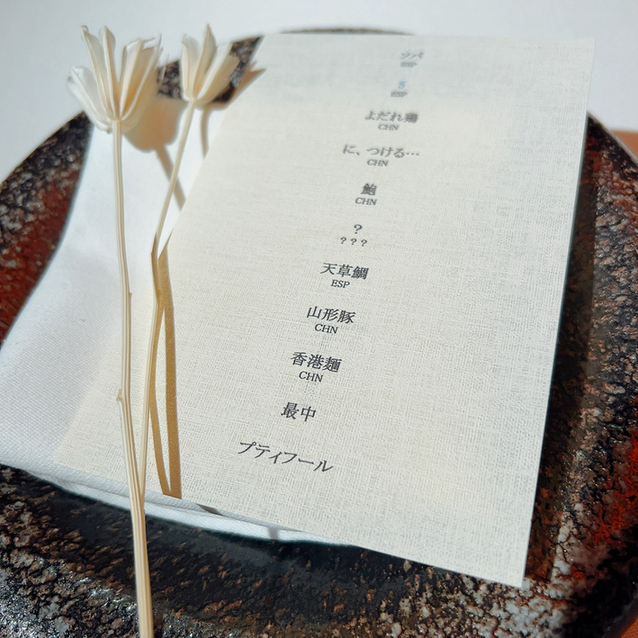 タパ
ESP
5
ESP
よだれ鶏
CHN
に、つける…
CHN
鮑
CHN
?
? ? ?
天草鯛
ESP
山形豚
CHN
香港麺
CHN
最中
プティフール